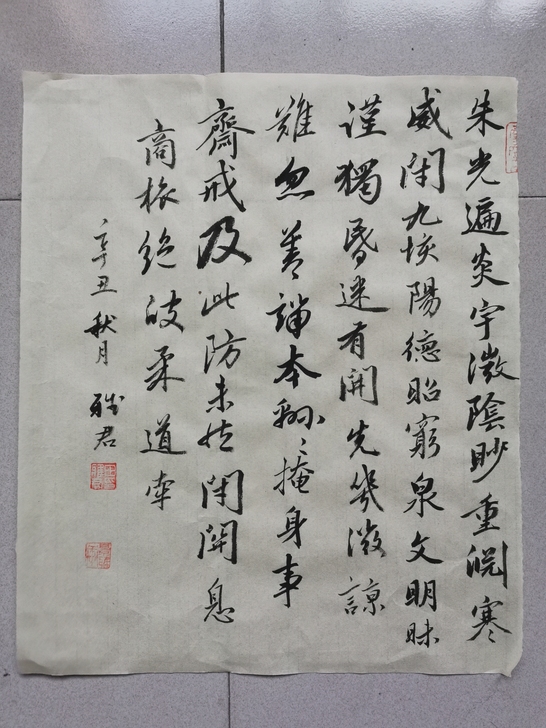 朱光遍炎宇微陰眇重淵寒
威閉九垓陽德昭窮泉文明昧
謹獨昏迷有開先幾微諒
難忽善端本綿々掩身事
齋戒及此防未然閉關息
商旅絕彼柔道牽
辛丑秋月 君